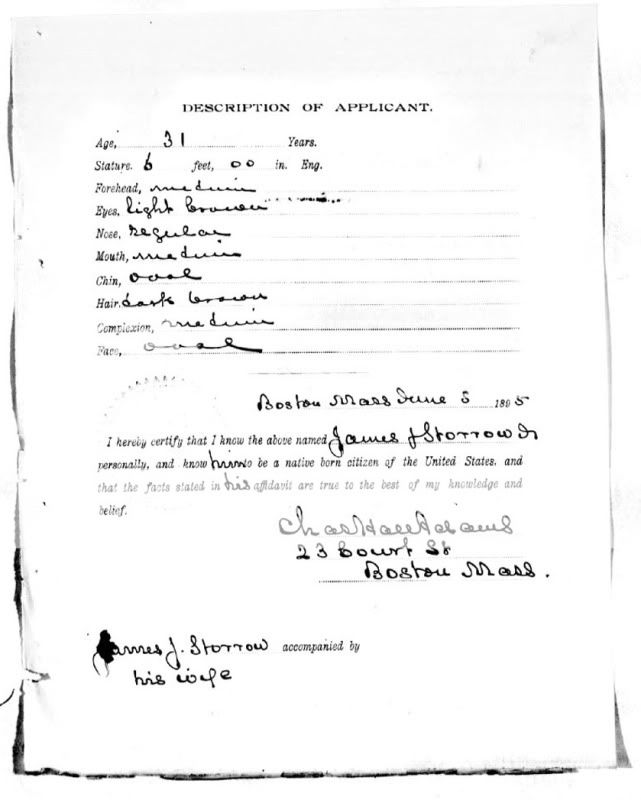 DESCRIPTION OF APPLICANT.
Age, 31 Years.
Stature. 6 feet, 00 in. Eng.
Forehead, medium
Eyes, light brown
Nose, regular
Mouth, medium
Chin, oval
Hair, dark brown
Complexion, medium
Face, oval
Boston Mass June 5 1895
I hereby certify that I know the above named James J Storrow Jr
personally, and know him to be a native born citizen of the United States, and
that the facts stated in his affidavit are true to the best of my knowledge and
belief.
Chas Hall Adams
23 Court St
Boston Mass.
James J. Storrow accompanied by
his wife